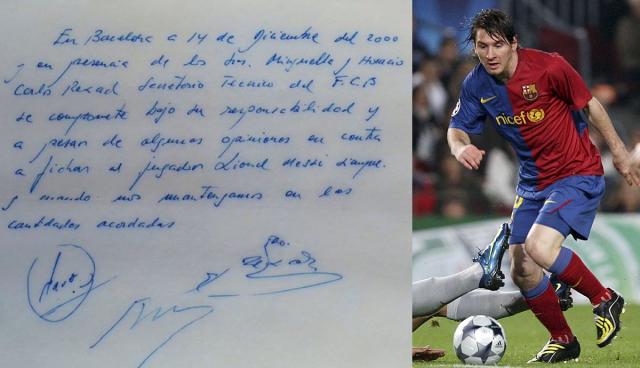 En Barcelona a 14 de Diciembre del 2000
y en presencia de los Srs. Minguella y Horacio
Carlos Rexach Secretario Técnico del F.C.B
se compromete bajo su responsabilidad y
a pesar de algunas opiniones en contra
a fichar al jugador Lionel Messi siempre
y cuando nos mantengamos en las
cantidades acordadas
unicef